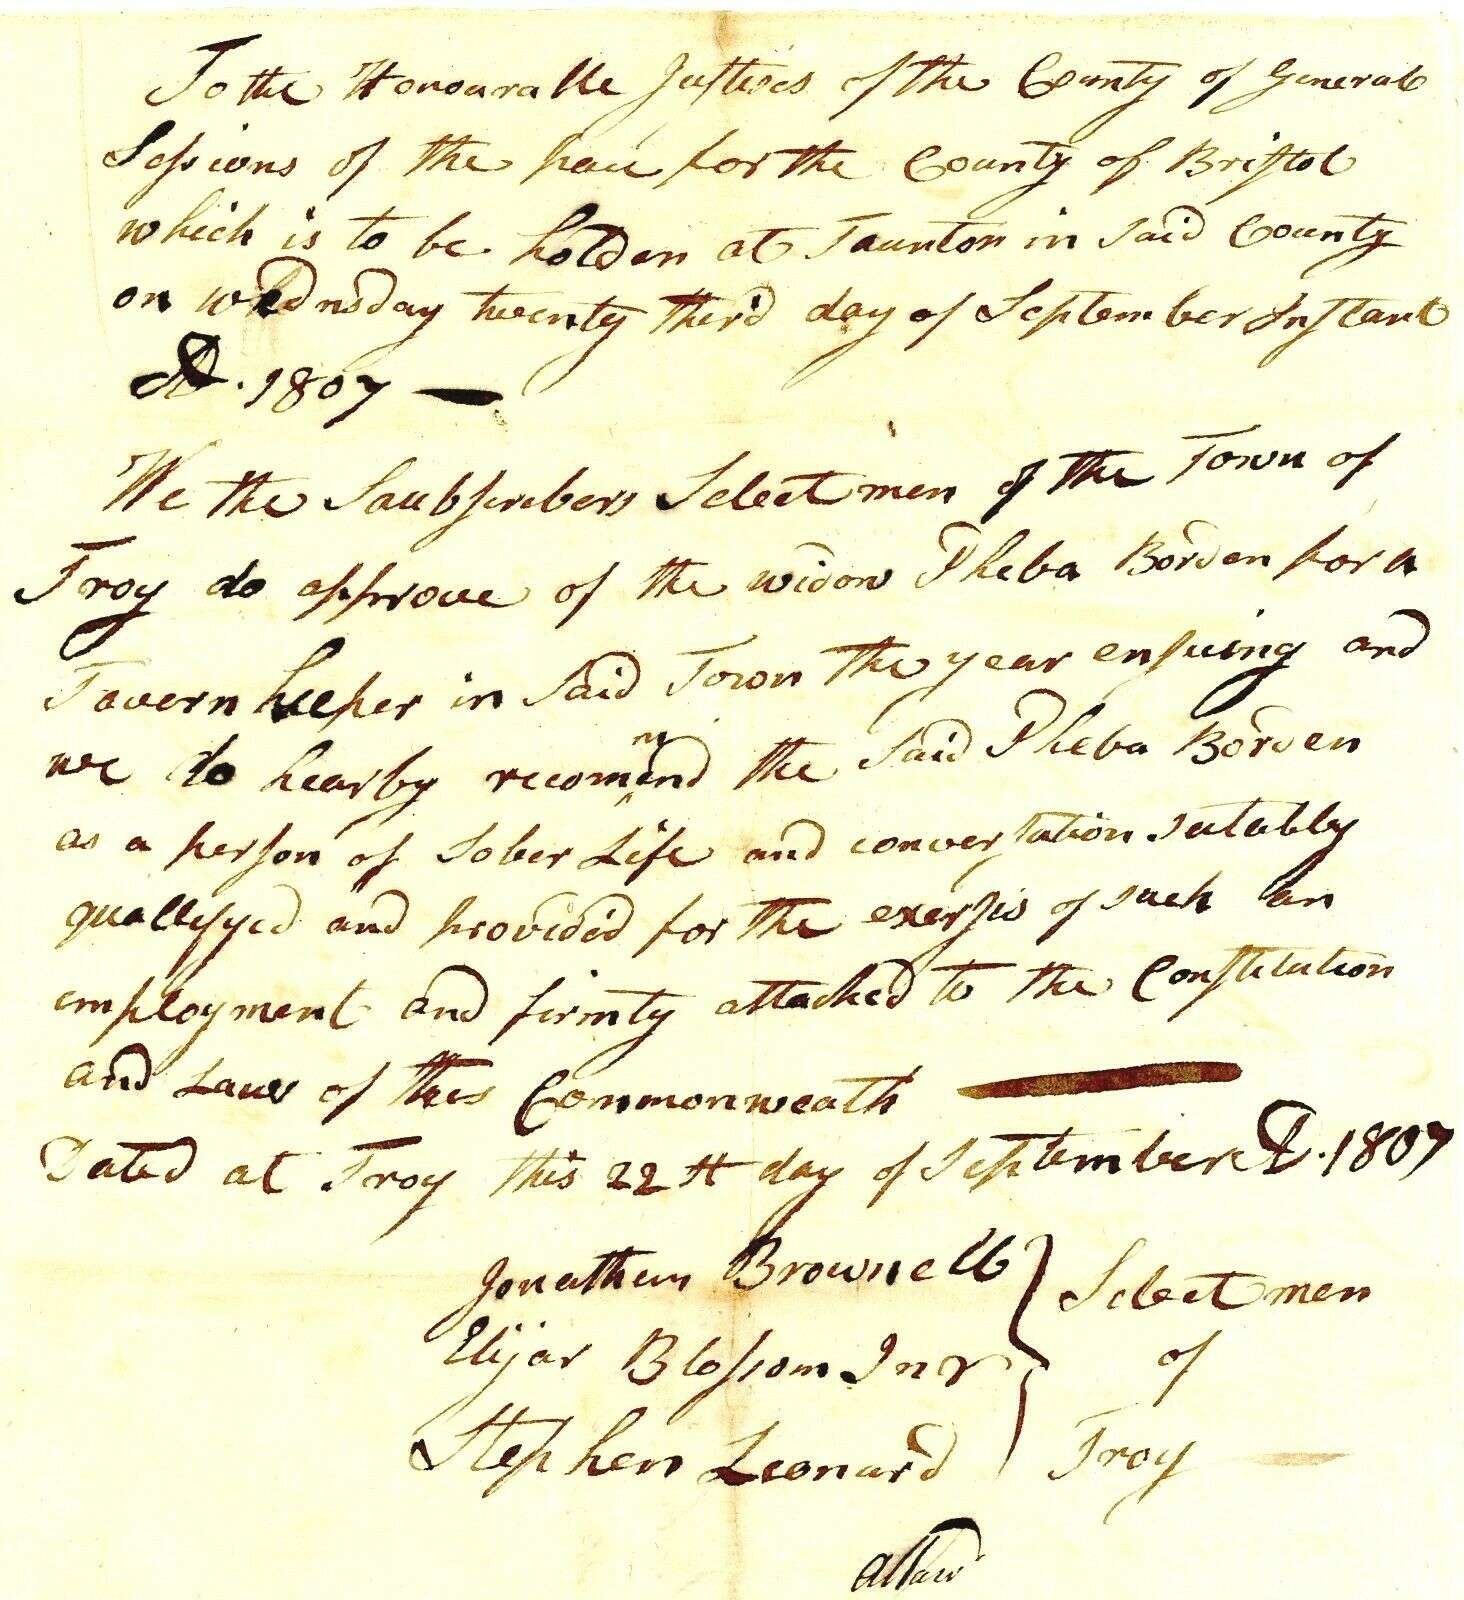 To the Honouralle Justices of the County of General
Sessions of the peace for the County of Bristol
which is to be holden at Taunton in said County
on wednsday twenty third day of September Instant
AD. 1807 —
We the Saubscribers Selectmen of the Town of
Troy do approve of the widow Pheba Borden for a
Tavern keeper in said Town the year ensuing and
we do hearby recommend the said Pheba Borden
as a person of sober Life and conversation sutabley
quallefyed and provided for the exersis of such an
employment and firmty attached to the Constitution
and Laws of this Commonweath
Dated at Troy this 22th day of September AD. 1807
Jonathan Brownell } Selectmen
Elijar Blossom Jnr } of
Stephen Leonard } Troy
allow'd